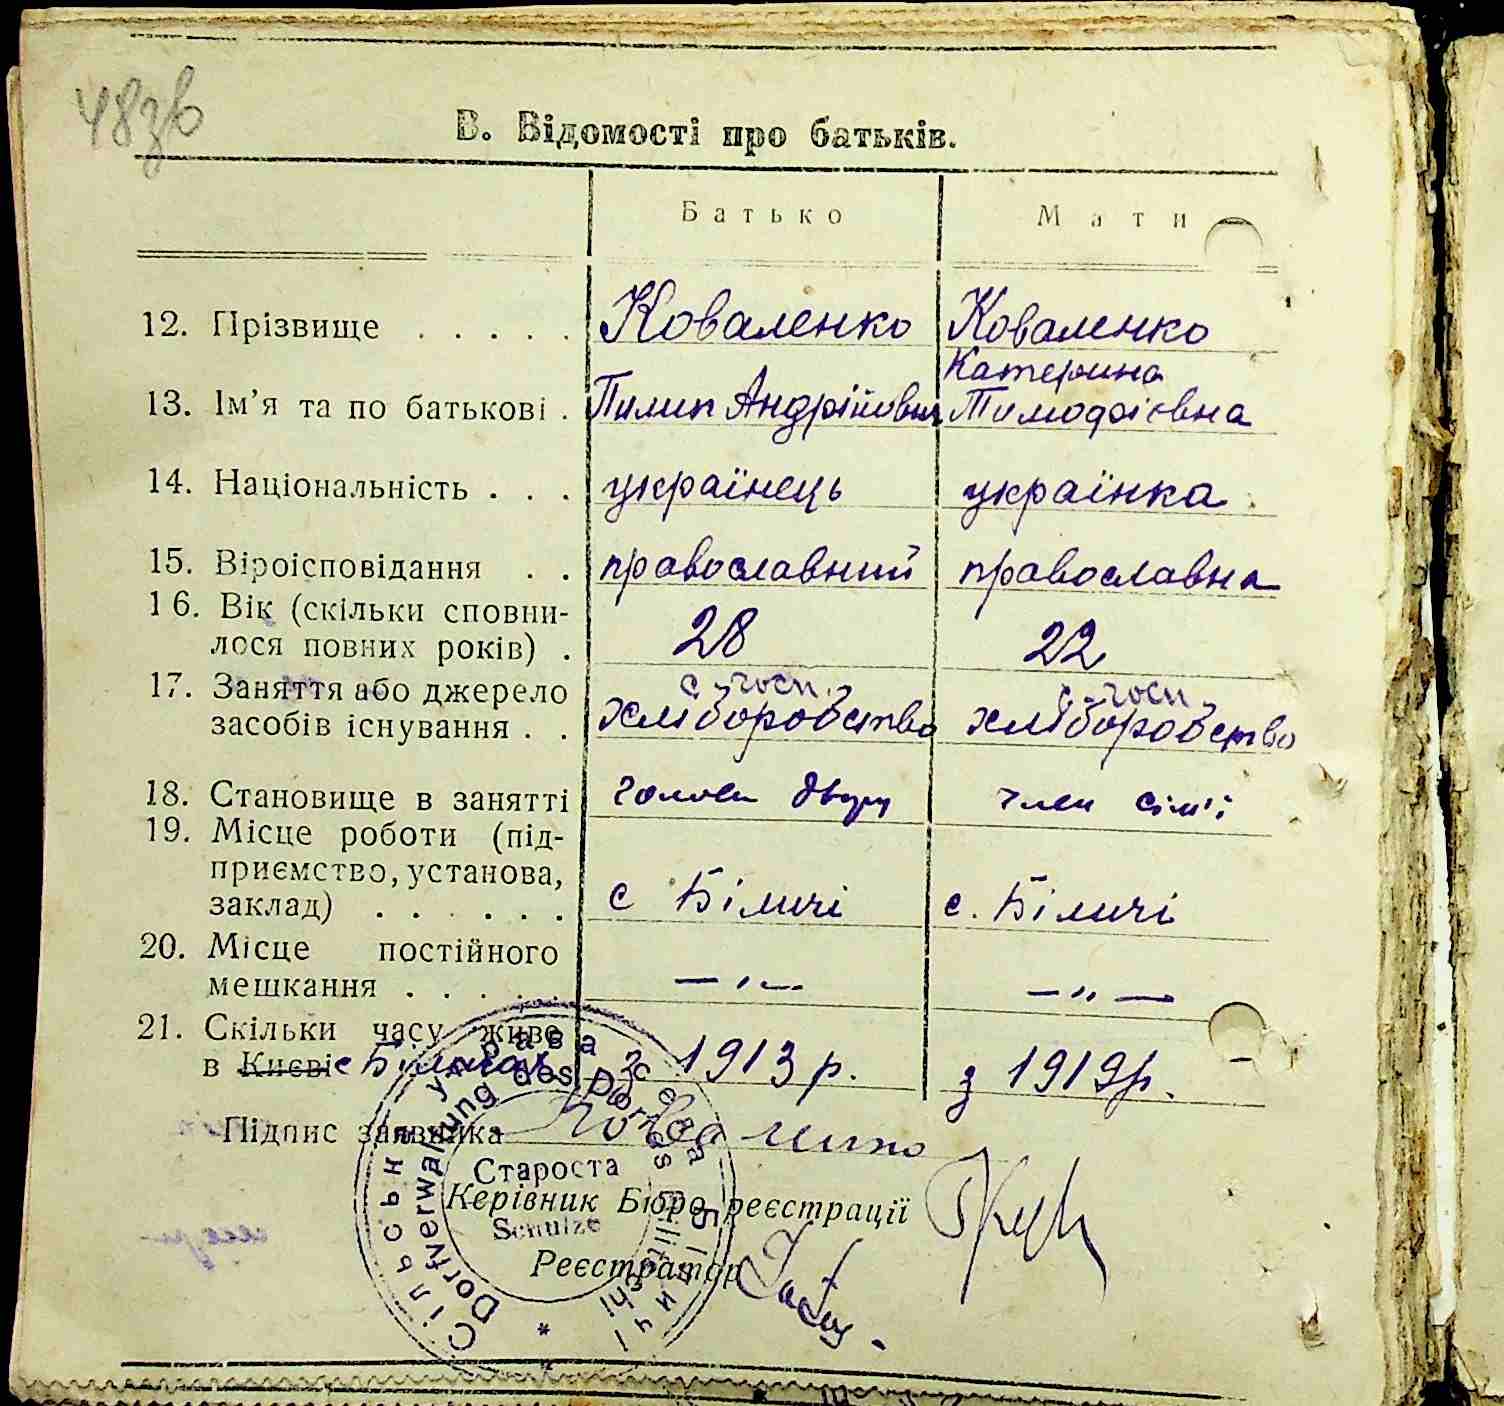 48зв
В. Відомості про батьків.
Батько Мати
12. Прізвище . . . . . Коваленко Коваленко
Катерина
13. Ім'я та по батькові . Пилип Андрійович Тимофіївна
14. Національність . . . українець українка
15. Віроісповідання . . православний православна
16. Вік (скільки сповни-
лося повних років) . 28 22
17. Заняття або джерело с-госп. с-госп.
засобів існування . . хліборобство хліборобство
18. Становище в занятті голова двору член сім'ї
19. Місце роботи (під-
приємство, установа,
заклад) . . . . . . с Біличі с. Біличі
20. Місце постійного
мешкання . . . . . — " — — " —
21. Скільки часу живе
в Києві с Біличах з 1913 р. з 1919 р. –
Підпис заявника Коваленко
Староста
Керівник Бюро реєстрації
Schulze
Реєстратор
Сільська управа села Біличі
Dorfverwaltung des Dorfes Bilitschi